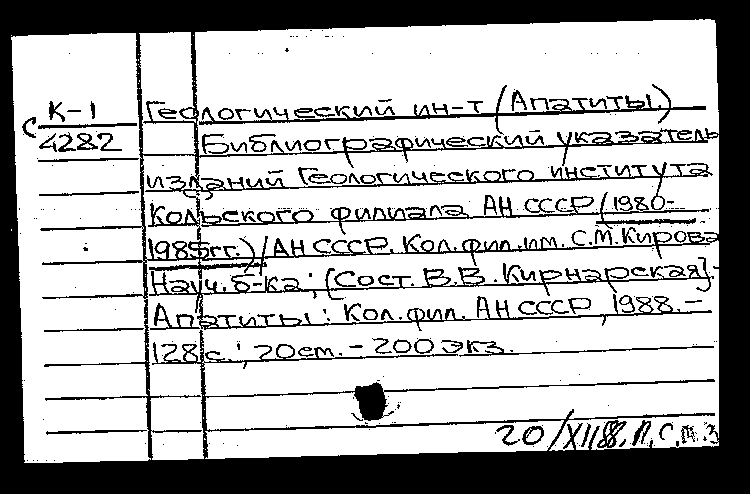 К-1 Геологический ин-т (Апатиты.)
с 4282 Библиографический указатель
изданий Геологического института
Кольского филиала АН СССР (1980-
1985гг.) / АН СССР. Кол. фил. им. С.М. Кирова
Науч. б-ка; [Сост. В.В. Кирнарская]. -
Апатиты: Кол. фил. АН СССР, 1988. -
128 с.; 20 см. - 200 экз.
20/XII88. П. С. М. З